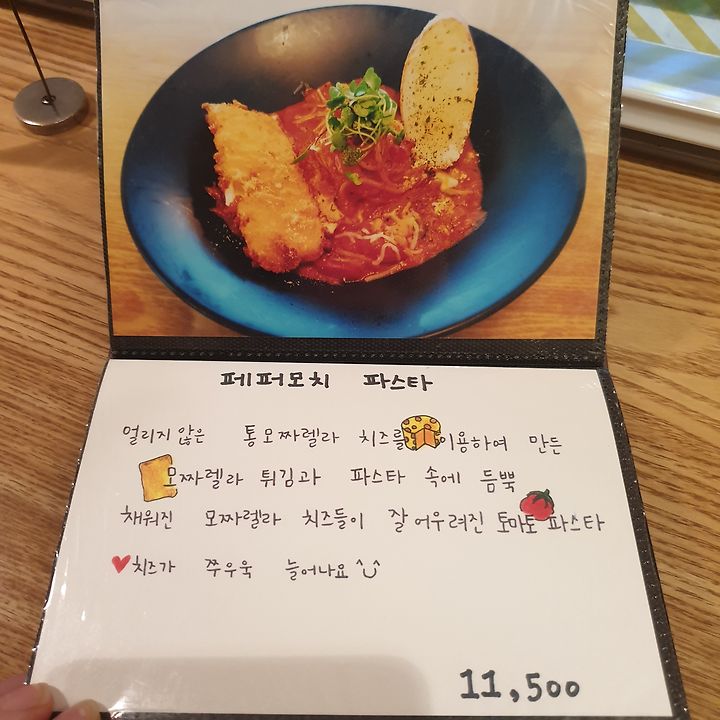 페퍼모치 파스타
얼리지 않은 통모짜렐라 치즈를 이용하여 만든
모짜렐라 튀김과 파스타 속에 듬뿍
채워진 모짜렐라 치즈들이 잘 어우려진 토마토 파스타
♥치즈가 쭈우욱 늘어나요^ᴗ^
11,500